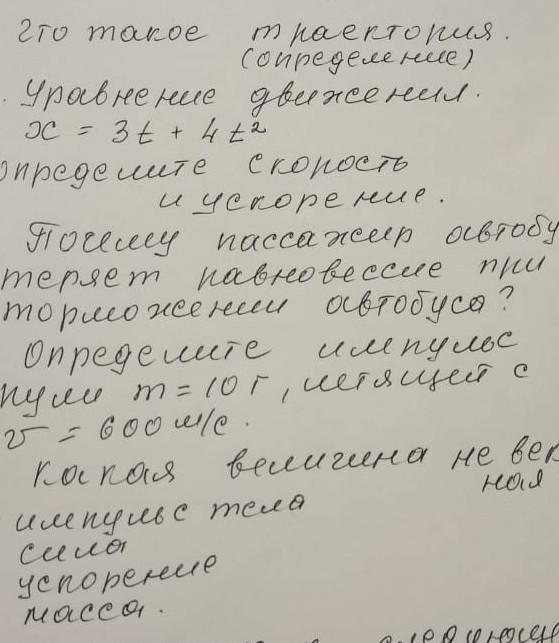 Что такое траектория.
(определение)
. Уравнение движения.
x = 3t + 4t²
определите скорость
и ускорение.
Почему пассажир автобу
теряет равновессие при
торможении автобуса?
Определите импульс
пули m = 10 г, летящей с
v = 600 м/с.
Какая величина не век
ная
импульс тела
сила
ускорение
масса.